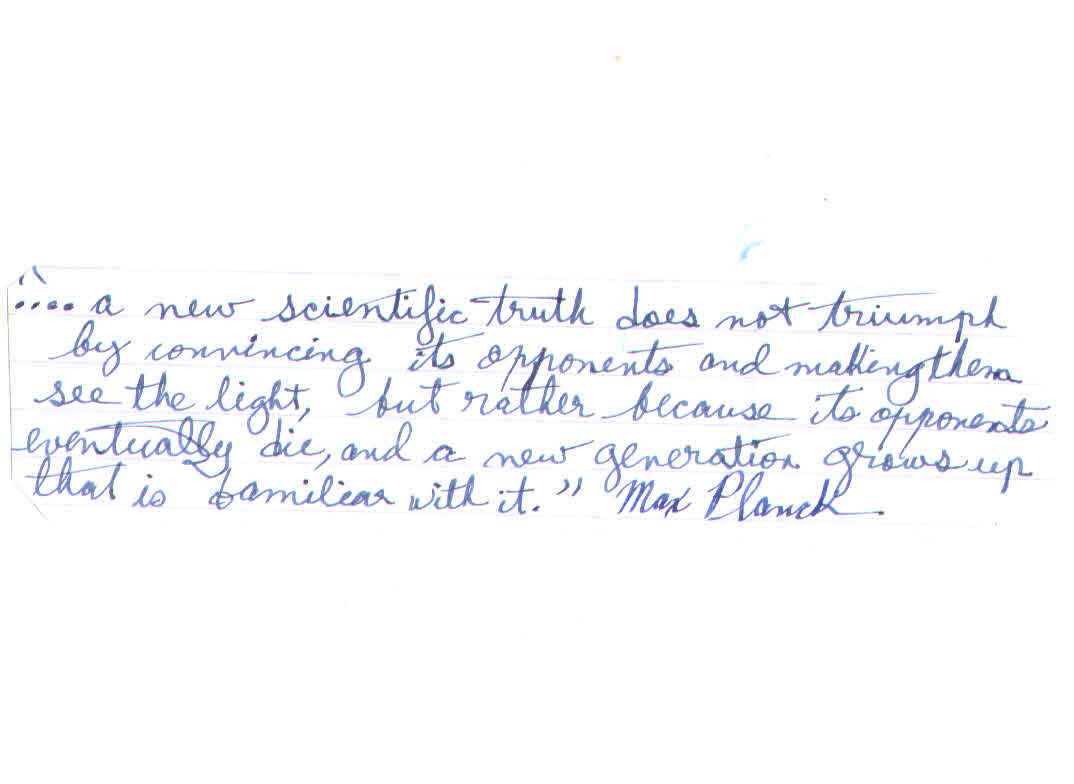 ".... a new scientific truth does not triumph
by convincing its opponents and making them
see the light, but rather because its opponents
eventually die, and a new generation grows up
that is familiar with it." Max Planck.